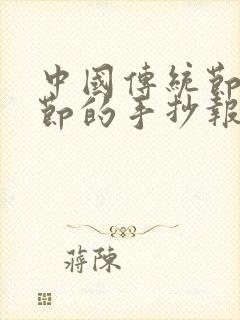 中國傳統節
節的手抄報
蔣陳